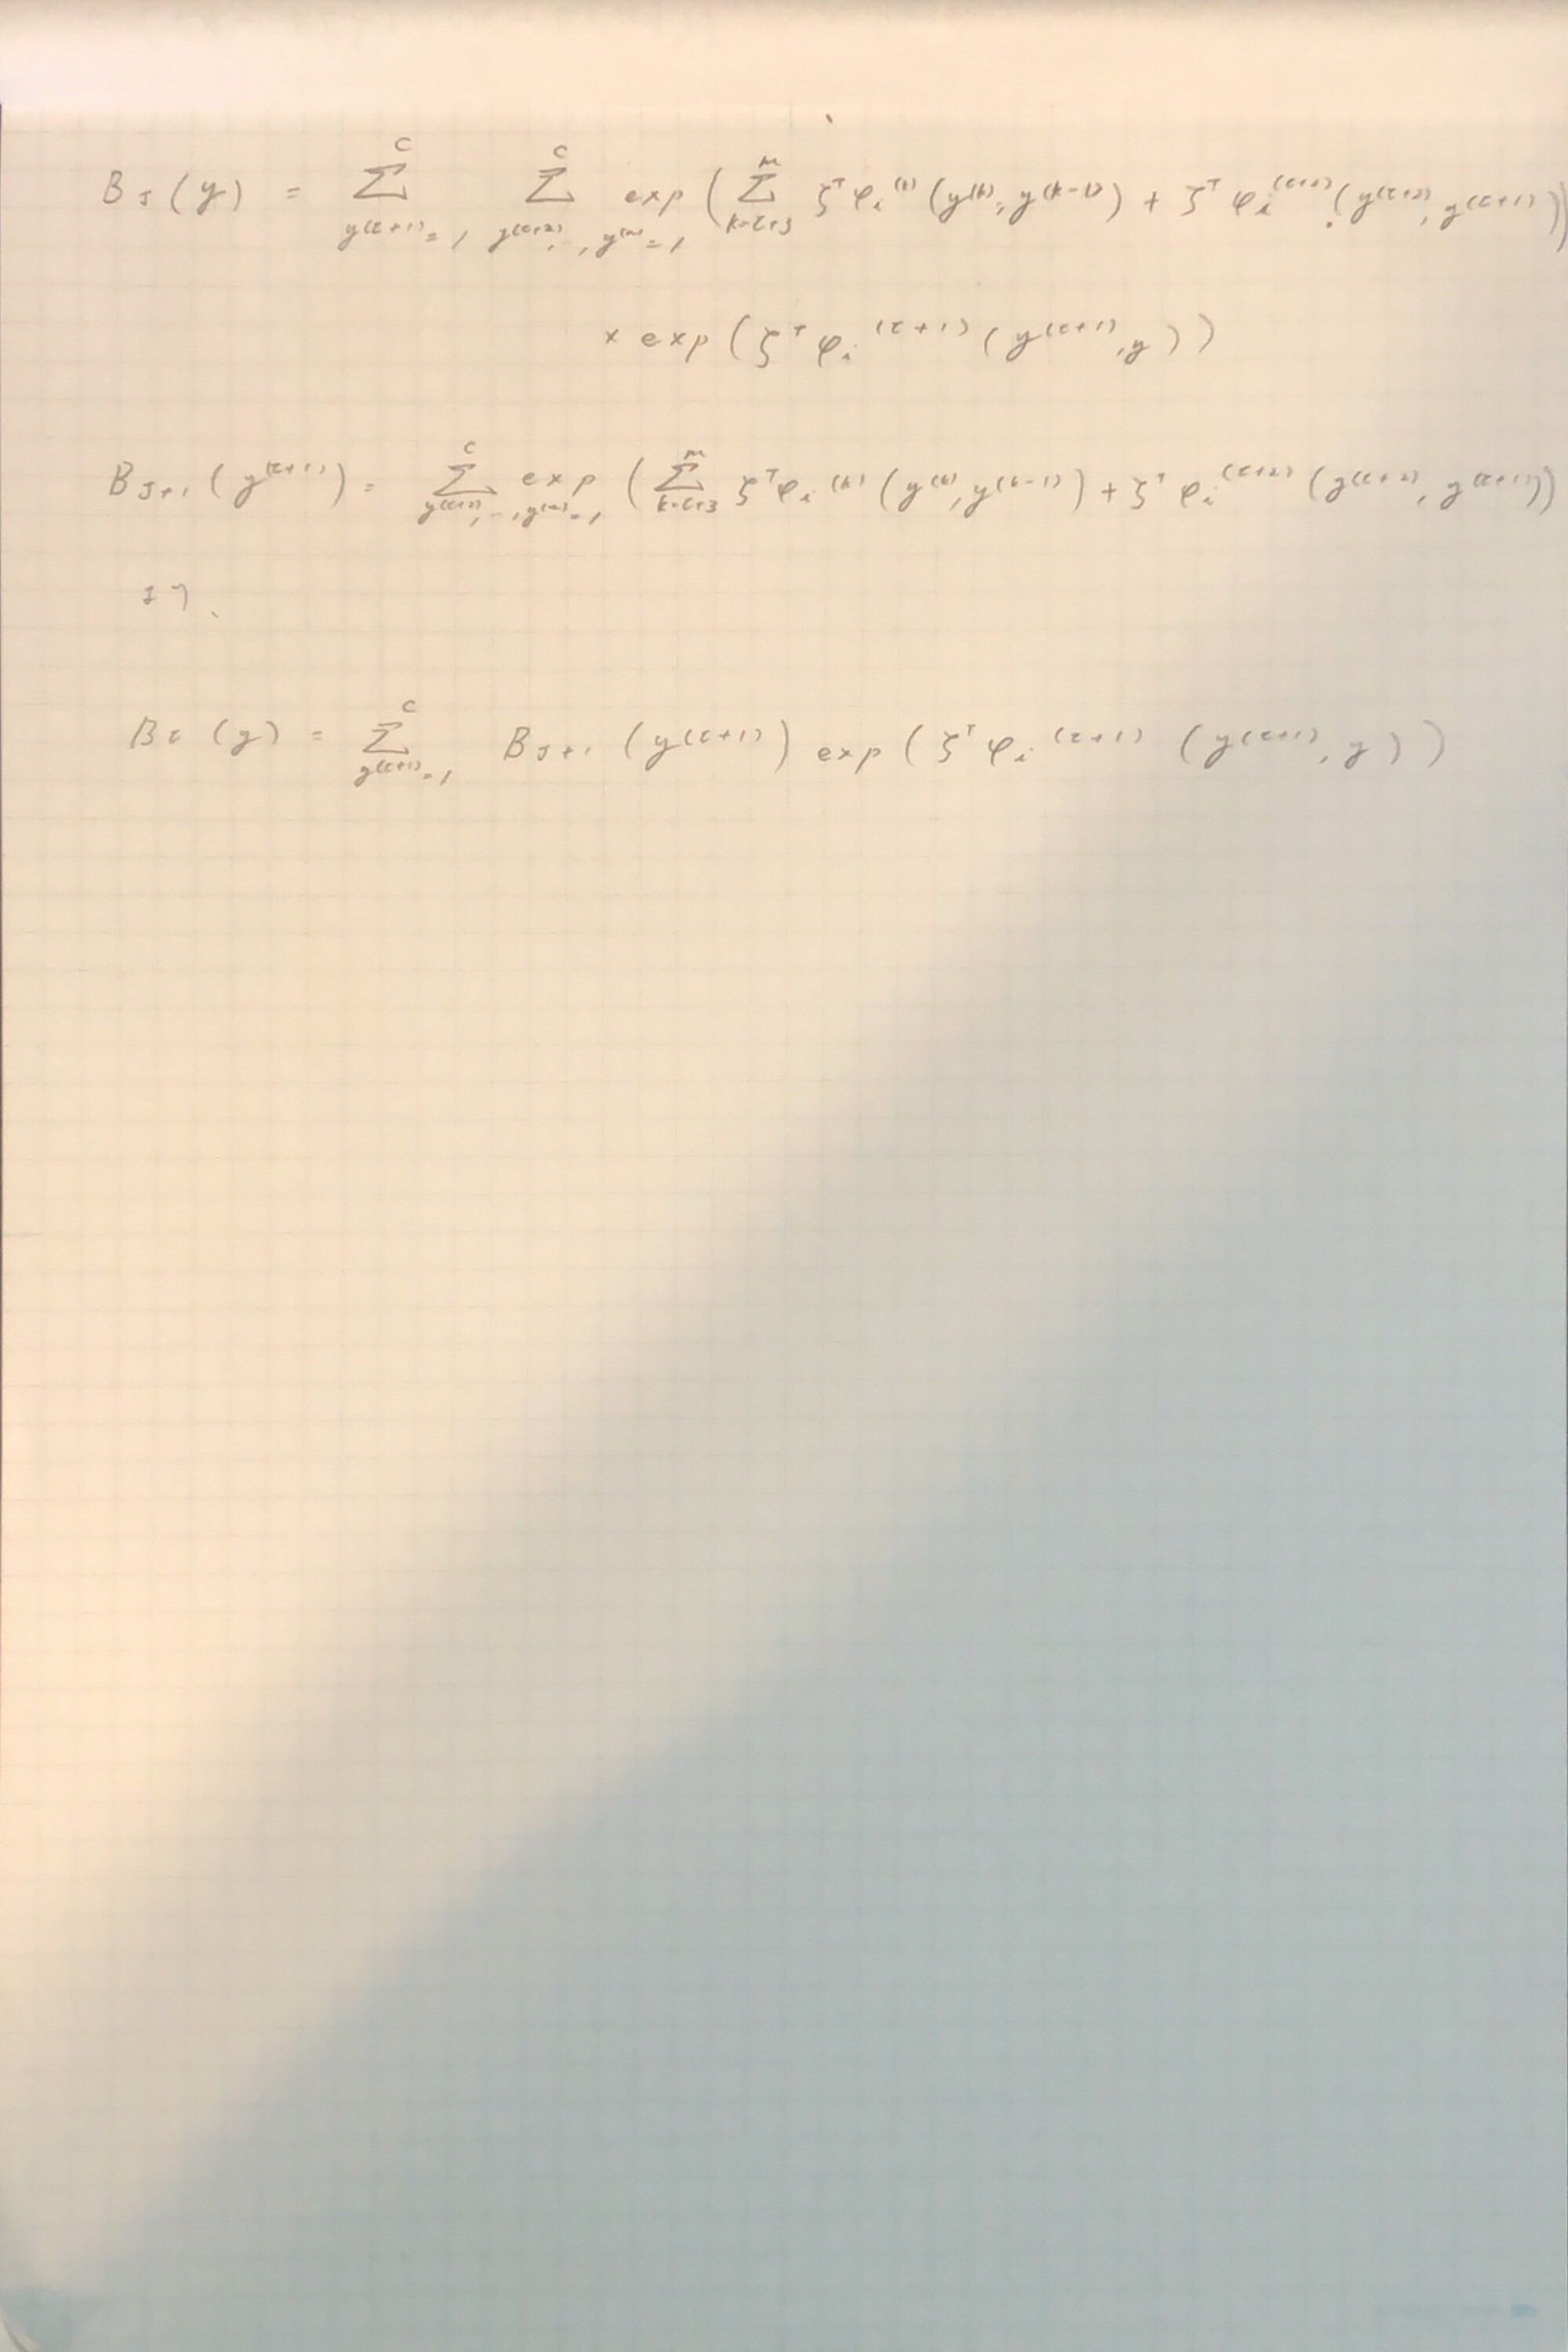 B_τ(y) = Σ_{y^(τ+1)=1}^{c} Σ_{y^(τ+2),…,y^(m)=1}^{c} exp(Σ_{k=τ+3}^{m} ζ^T φ_i^(k)(y^(k), y^(k-1)) + ζ^T φ_i^(τ+2)(y^(τ+2), y^(τ+1)))
× exp(ζ^T φ_i^(τ+1)(y^(τ+1), y))
B_τ+1(y^(τ+1)) = Σ_{y^(τ+2),…,y^(m)=1}^{c} exp(Σ_{k=τ+3}^{m} ζ^T φ_i^(k)(y^(k), y^(k-1)) + ζ^T φ_i^(τ+2)(y^(τ+2), y^(τ+1)))
より、
B_τ(y) = Σ_{y^(τ+1)=1}^{c} B_τ+1(y^(τ+1)) exp(ζ^T φ_i^(τ+1)(y^(τ+1), y))